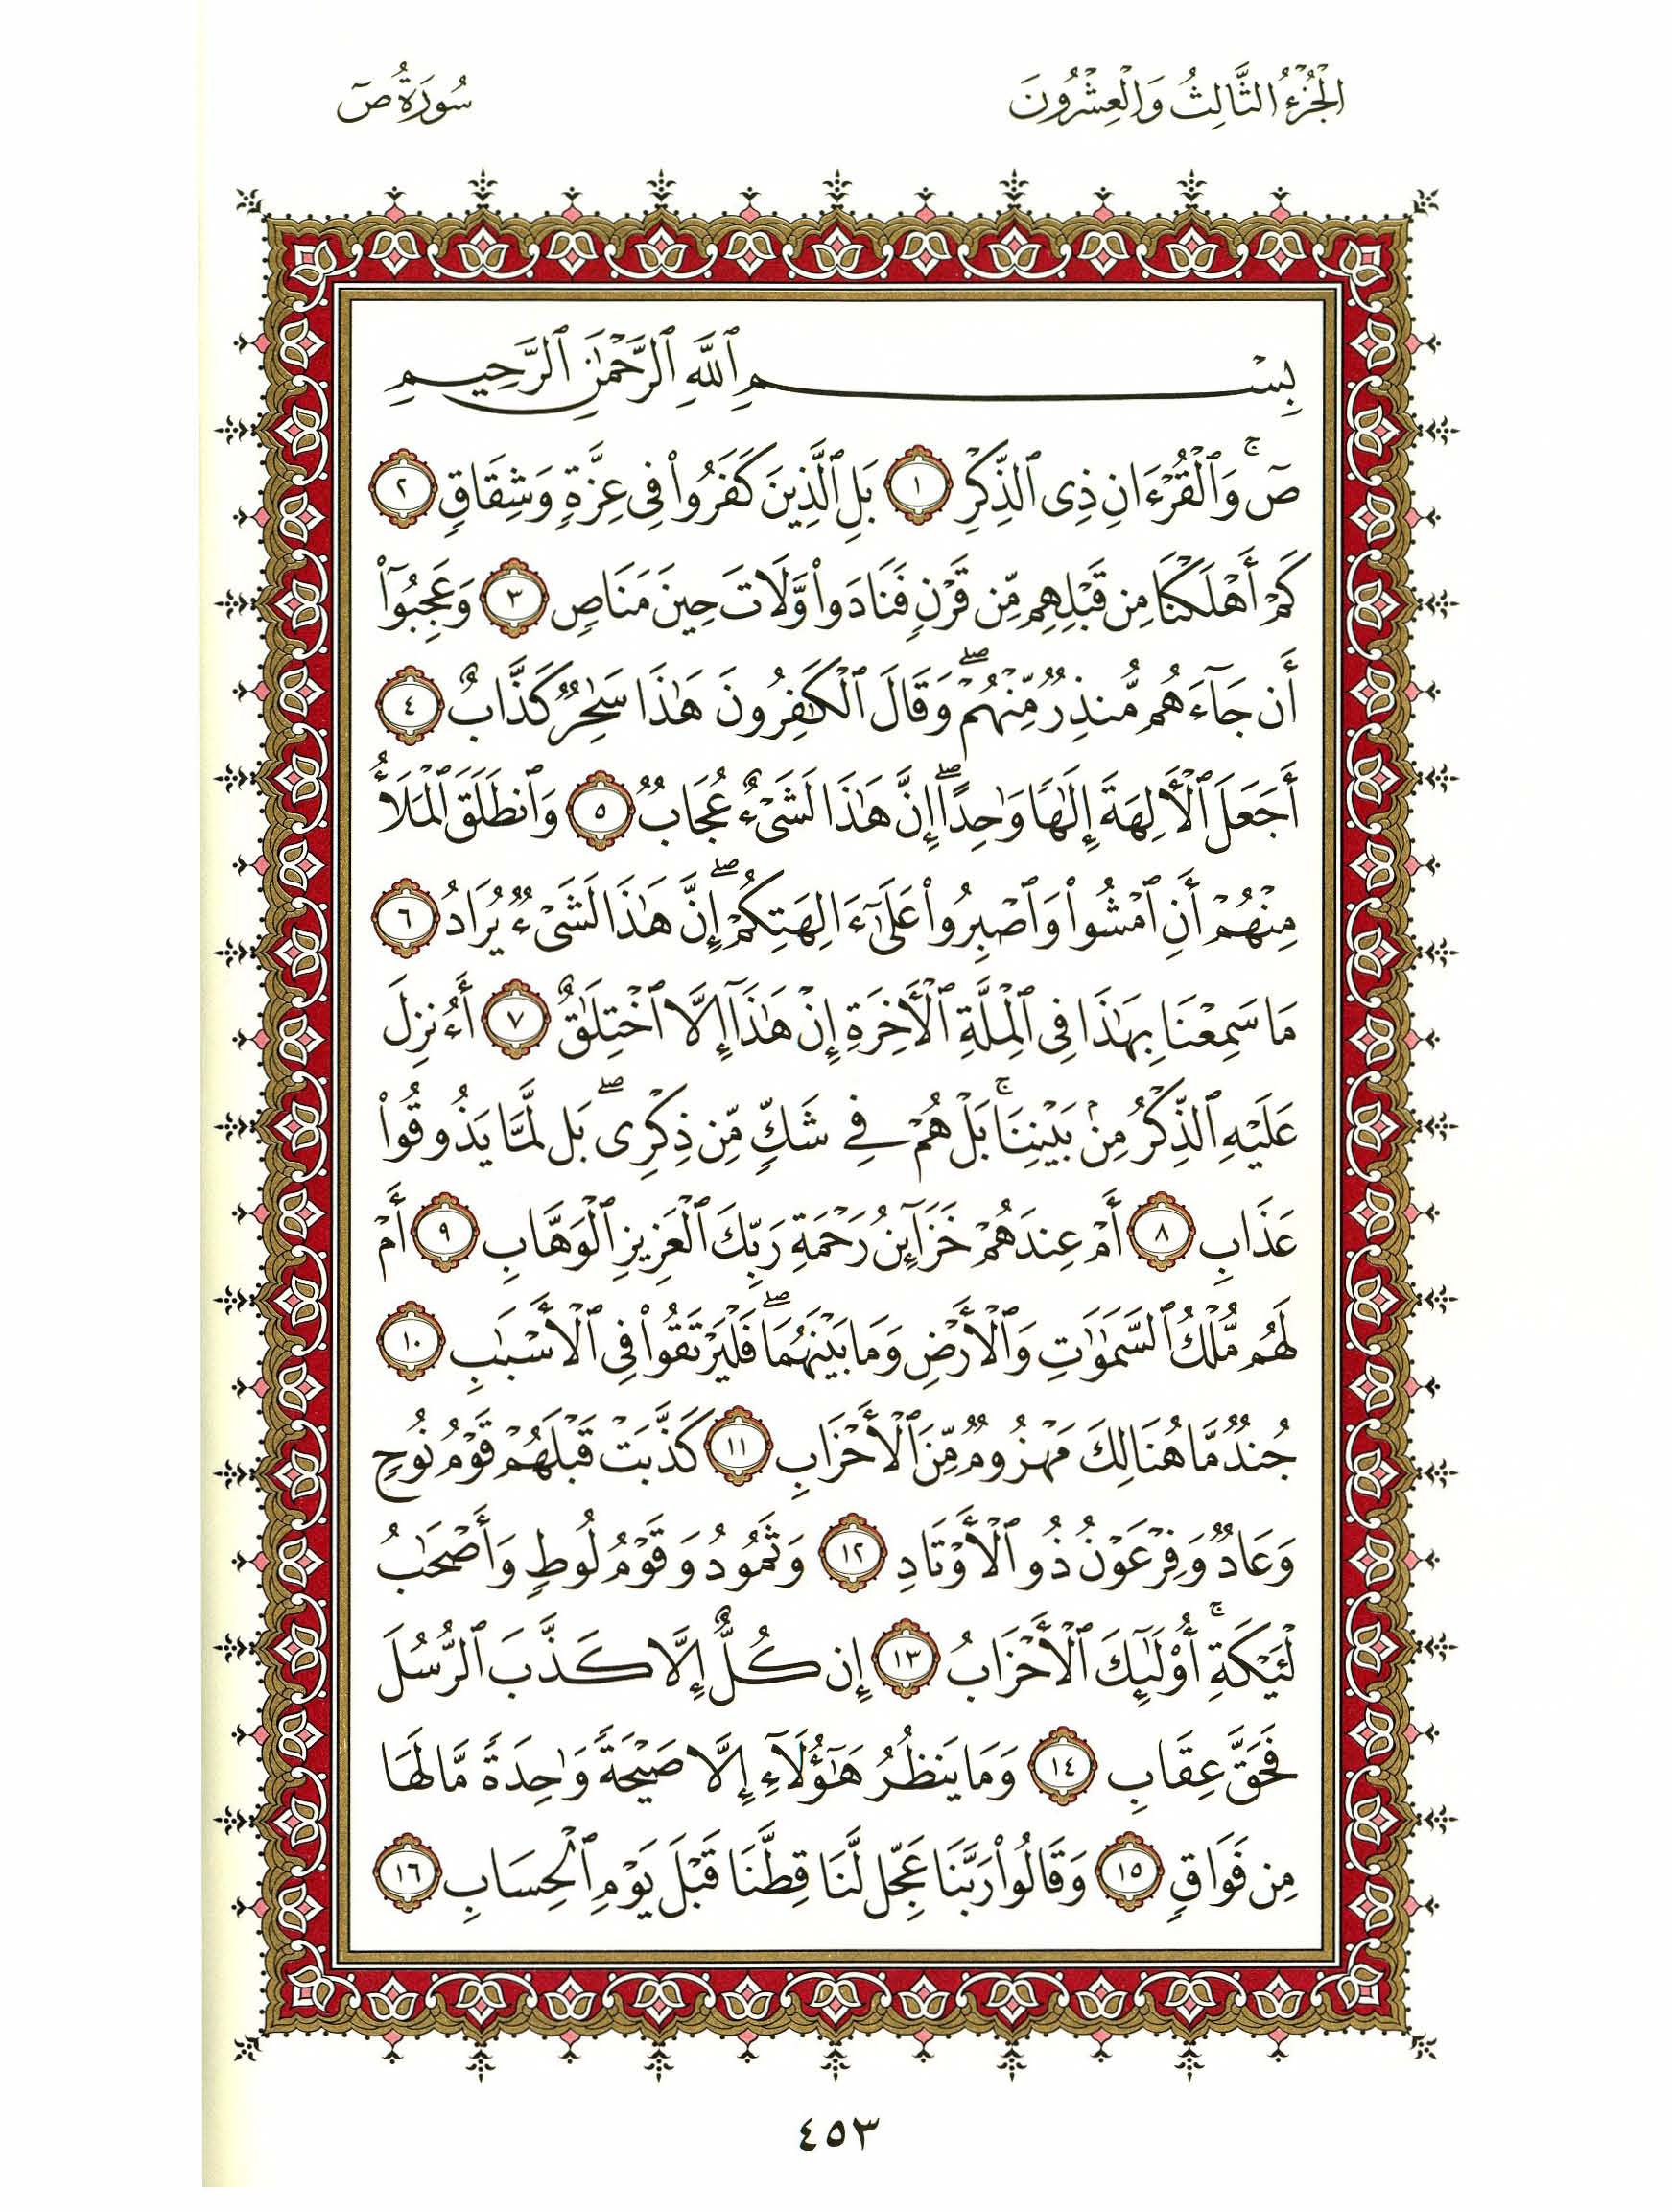 الجُزْءُ الثَّالِثُ وَالْعِشْرُونَ
سُورَةُ صٓ
بِسْمِ ٱللَّهِ ٱلرَّحْمَٰنِ ٱلرَّحِيمِ
صٓۚ وَٱلْقُرْءَانِ ذِى ٱلذِّكْرِ ١ بَلِ ٱلَّذِينَ كَفَرُوا۟ فِى عِزَّةٍ وَشِقَاقٍ ٢
كَمْ أَهْلَكْنَا مِن قَبْلِهِم مِّن قَرْنٍ فَنَادَوا۟ وَّلَاتَ حِينَ مَنَاصٍ ٣ وَعَجِبُوٓا۟
أَن جَآءَهُم مُّنذِرٌ مِّنْهُمْۖ وَقَالَ ٱلْكَٰفِرُونَ هَٰذَا سَٰحِرٌ كَذَّابٌ ٤
أَجَعَلَ ٱلْأَلِهَةَ إِلَٰهًا وَٰحِدًاۖ إِنَّ هَٰذَا لَشَىْءٌ عُجَابٌ ٥ وَٱنطَلَقَ ٱلْمَلَأُ
مِنْهُمْ أَنِ ٱمْشُوا۟ وَٱصْبِرُوا۟ عَلَىٰٓ ءَالِهَتِكُمْۖ إِنَّ هَٰذَا لَشَىْءٌ يُرَادُ ٦
مَا سَمِعْنَا بِهَٰذَا فِى ٱلْمِلَّةِ ٱلْأَخِرَةِ إِنْ هَٰذَآ إِلَّا ٱخْتِلَٰقٌ ٧ أَءُنزِلَ
عَلَيْهِ ٱلذِّكْرُ مِنۢ بَيْنِنَاۚ بَلْ هُمْ فِى شَكٍّ مِّن ذِكْرِىۖ بَل لَّمَّا يَذُوقُوا۟
عَذَابِ ٨ أَمْ عِندَهُمْ خَزَآئِنُ رَحْمَةِ رَبِّكَ ٱلْعَزِيزِ ٱلْوَهَّابِ ٩ أَمْ
لَهُم مُّلْكُ ٱلسَّمَٰوَٰتِ وَٱلْأَرْضِ وَمَا بَيْنَهُمَاۖ فَلْيَرْتَقُوا۟ فِى ٱلْأَسْبَٰبِ ١٠
جُندٌ مَّا هُنَالِكَ مَهْزُومٌ مِّنَ ٱلْأَحْزَابِ ١١ كَذَّبَتْ قَبْلَهُمْ قَوْمُ نُوحٍ
وَعَادٌ وَفِرْعَوْنُ ذُو ٱلْأَوْتَادِ ١٢ وَثَمُودُ وَقَوْمُ لُوطٍ وَأَصْحَٰبُ
لْـَٔيْكَةِۚ أُو۟لَٰٓئِكَ ٱلْأَحْزَابُ ١٣ إِن كُلٌّ إِلَّا كَذَّبَ ٱلرُّسُلَ
فَحَقَّ عِقَابِ ١٤ وَمَا يَنظُرُ هَٰٓؤُلَآءِ إِلَّا صَيْحَةً وَٰحِدَةً مَّا لَهَا
مِن فَوَاقٍ ١٥ وَقَالُوا۟ رَبَّنَا عَجِّل لَّنَا قِطَّنَا قَبْلَ يَوْمِ ٱلْحِسَابِ ١٦
٤٥٣